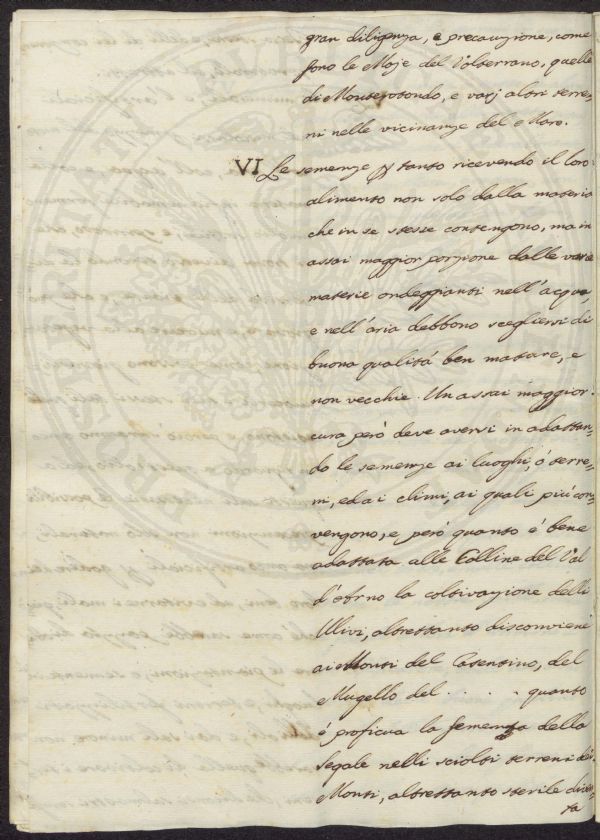 gran diligenza, e precauzione, come
sono le Moje del Volterrano, quelle
di Monterotondo, e varj altri terre-
ni nelle vicinanze del Mare.
VI Le semenze ptanto ricevendo il loro
alimento non solo dalla materia
che in se stesse contengono, ma in
assai maggior porzione dalle varie
materie ondeggianti nell'acqua,
e nell'aria debbono scegliersi di
buona qualitá ben mature, e
non vecchie. Un assai maggior
cura peró deve aversi in adattan-
do le semenze ai luoghi, ó terre-
ni, ed ai climi, ai quali piú con-
vengono, e peró quanto é bene
adattata alle Colline del Val
d'Arno la coltivazione delli
Ulivi, altrettanto disconviene
ai Monti del Casentino, del
Mugello del . . . . quanto
é proficua la semenza della
segale nelli sciolti terreni dei
Monti, altrettanto sterile diven-
ta